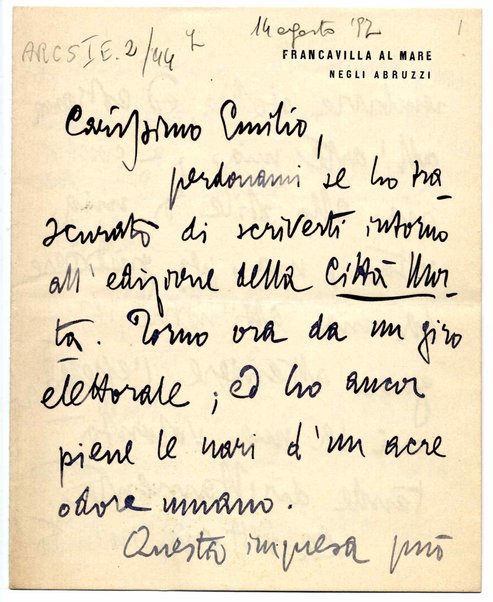 14 agosto '97
ARCS I E. 2/44
FRANCAVILLA AL MARE
NEGLI ABRUZZI
Carissimo Emilio,
perdonami se ho tra
scurato di scriverti intorno
all'edizione della Città Mor-
ta. Torno ora da un giro
elettorale; ed ho ancor
piene le nari d'un acre
odore umano.
Questa impresa può